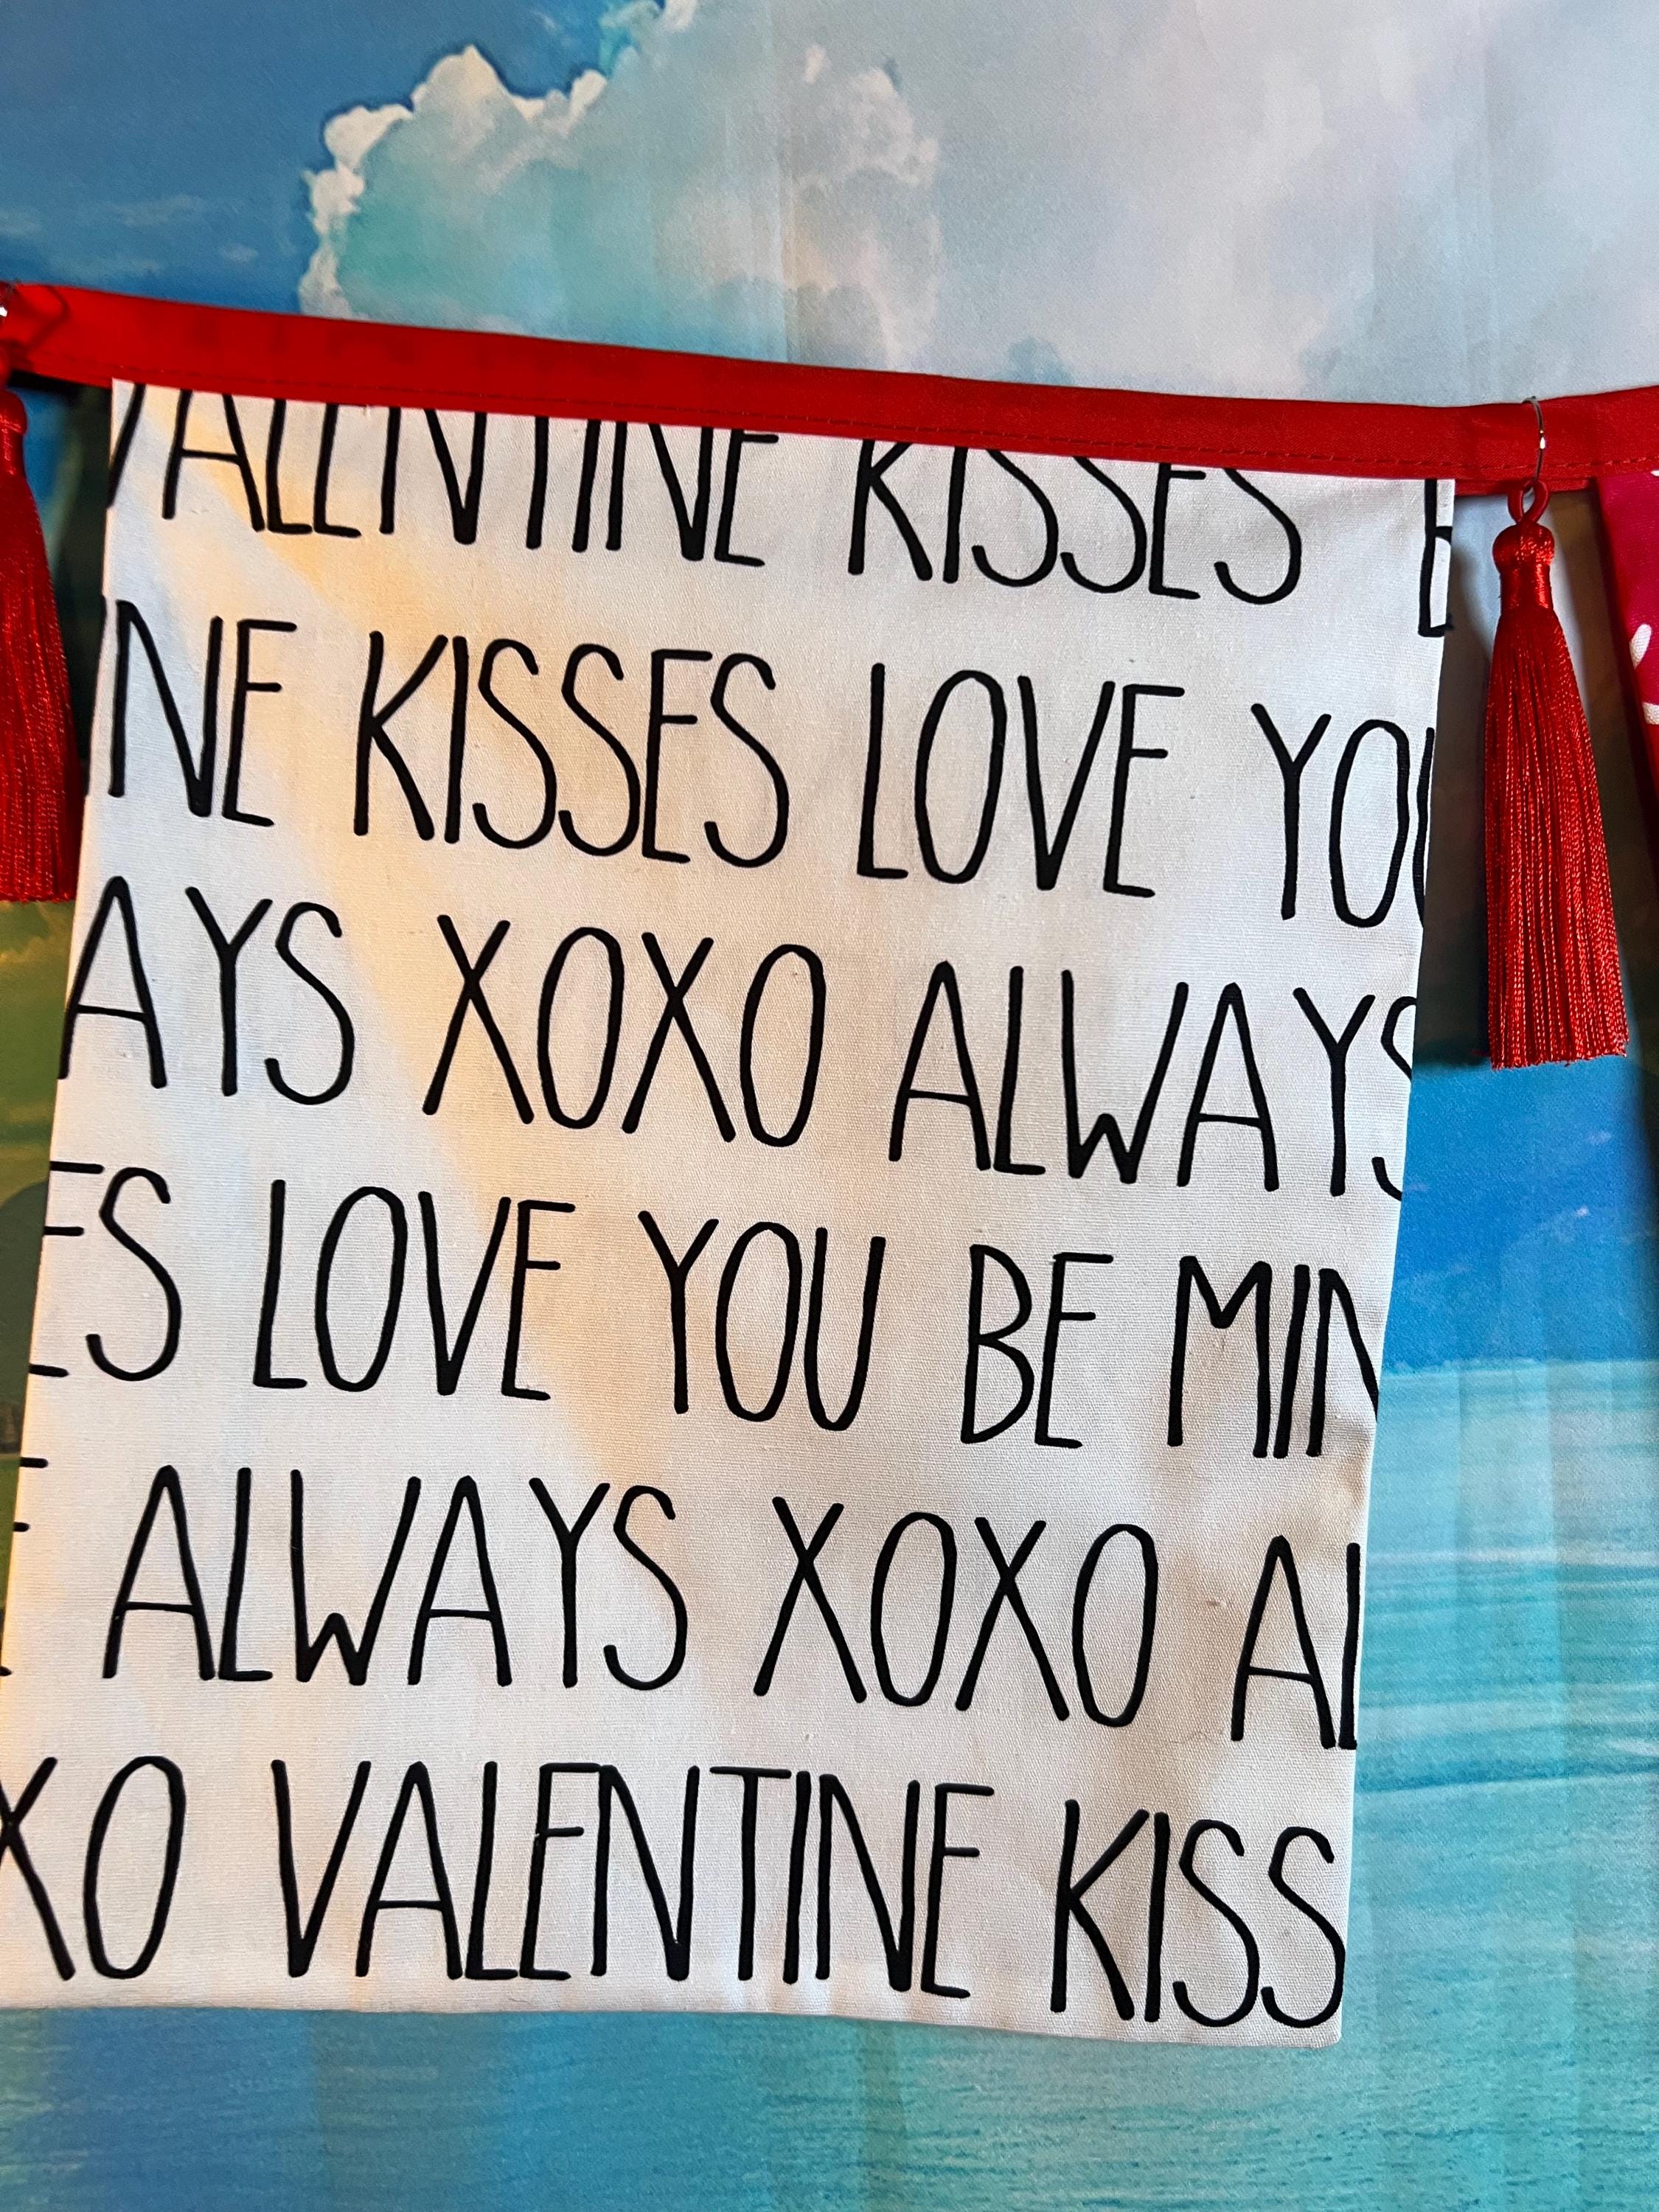 VALENTINE KISSES B
INE KISSES LOVE YOU
AYS XOXO ALWAYS
ES LOVE YOU BE MIN
E ALWAYS XOXO AL
XO VALENTINE KISS